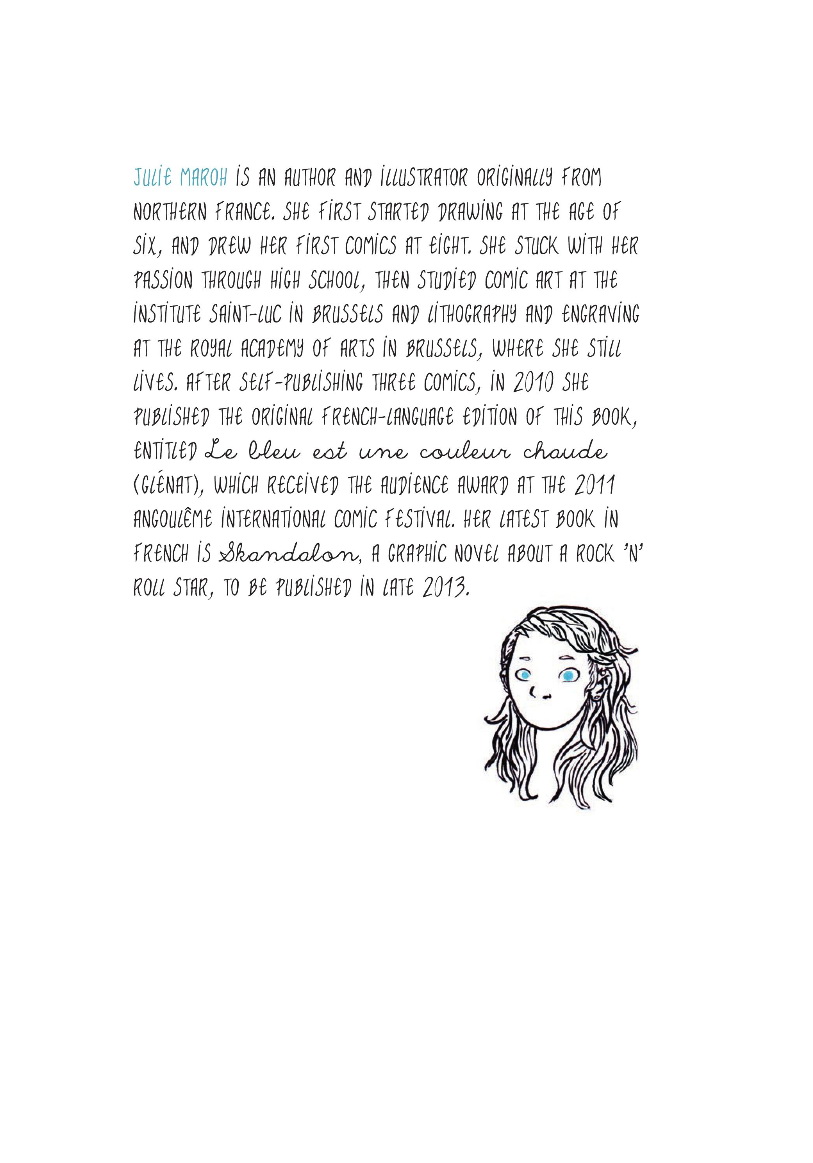 JULIE MAROH IS AN AUTHOR AND ILLUSTRATOR ORIGINALLY FROM
NORTHERN FRANCE. SHE FIRST STARTED DRAWING AT THE AGE OF
SIX, AND DREW HER FIRST COMICS AT EIGHT. SHE STUCK WITH HER
PASSION THROUGH HIGH SCHOOL, THEN STUDIED COMIC ART AT THE
INSTITUTE SAINT-LUC IN BRUSSELS AND LITHOGRAPHY AND ENGRAVING
AT THE ROYAL ACADEMY OF ARTS IN BRUSSELS, WHERE SHE STILL
LIVES. AFTER SELF-PUBLISHING THREE COMICS, IN 2010 SHE
PUBLISHED THE ORIGINAL FRENCH-LANGUAGE EDITION OF THIS BOOK,
ENTITLED Le bleu est une couleur chaude
(GLÉNAT), WHICH RECEIVED THE AUDIENCE AWARD AT THE 2011
ANGOULÊME INTERNATIONAL COMIC FESTIVAL. HER LATEST BOOK IN
FRENCH IS Skandalon, A GRAPHIC NOVEL ABOUT A ROCK 'N'
ROLL STAR, TO BE PUBLISHED IN LATE 2013.